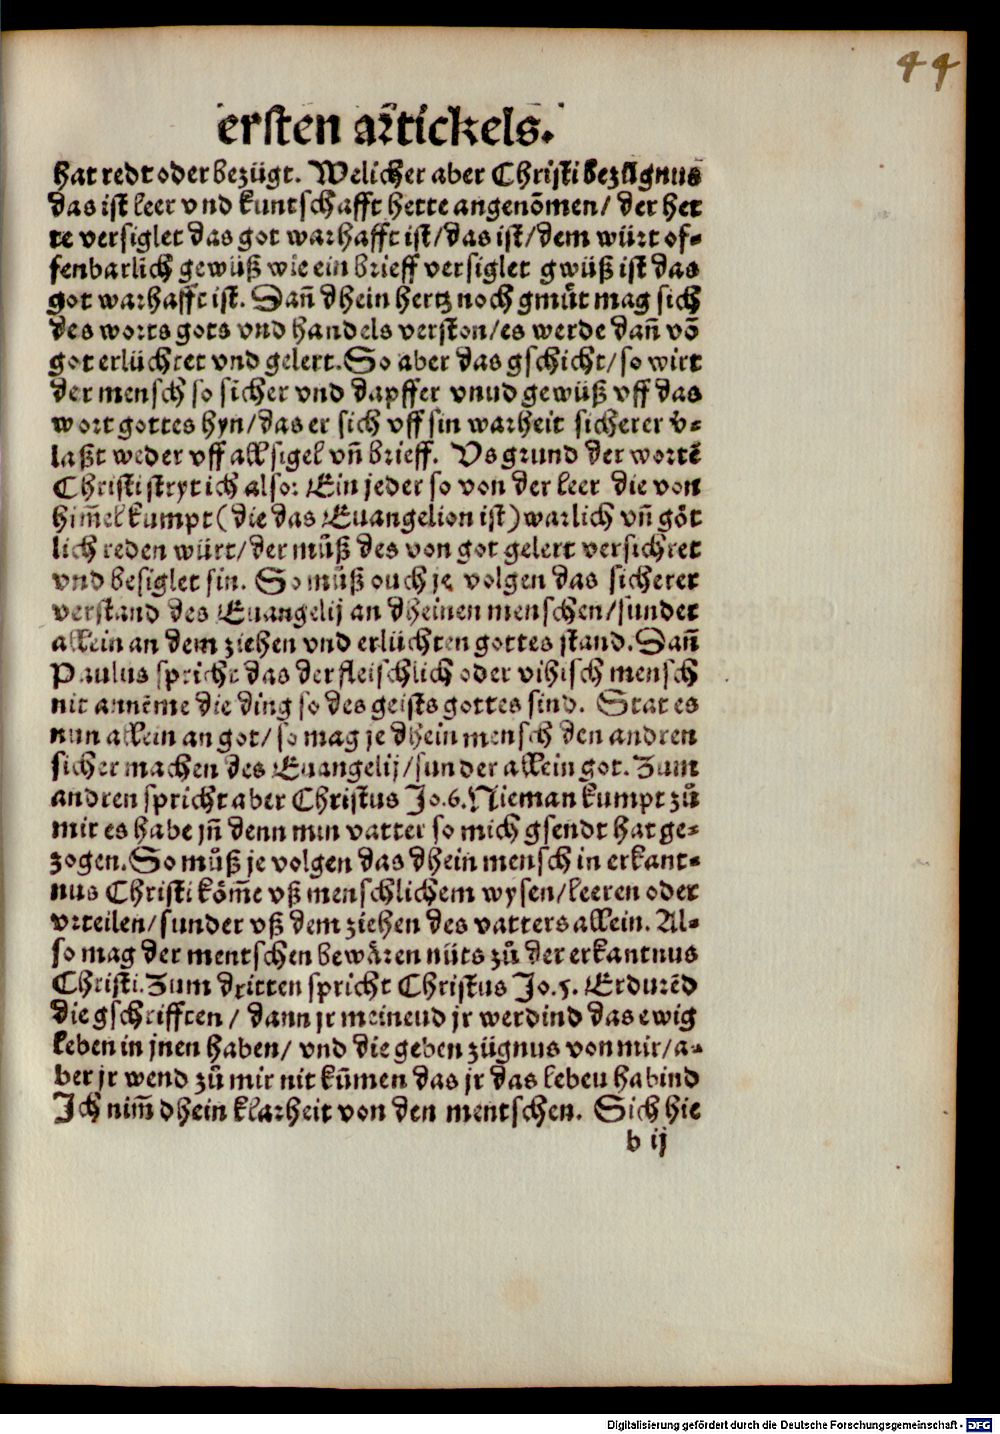 44
ersten artickels.
hat redt oder bezügt. Welicher aber Christi bezügnus
das ist leer vnd kuntschafft hette angenõmen/ der het
te versiglet das got warhafft ist/das ist/dem würt of-
fenbarlich gewüß wie ein brieff versiglet gwüß ist das
got warhafft ist. Dañ dhein hertz noch gmuͤt mag sich
des worts gots vnd handels verston/es werde dañ võ
got erlüchtet vnd gelert. So aber das gschicht/so wirt
der mensch so sicher vnd dapffer vnud gewüß vff das
wort gottes hyn/das er sich vff sin warheit sicherer v̄-
laßt weder vff all sigel vñ brieff. Vs grund der wortẽ
Christi stryt ich also: Ein jeder so von der leer die von
him̃el kumpt(die das Euangelion ist)warlich vñ göt
lich reden würt/der muͤß des von got gelert versichret
vnd besiglet sin. So muͤß ouch je volgen das sicherer
verstand des Euangelij an dheinen menschen/sunder
allein an dem ziehen vnd erlüchten gottes stand. Dañ
Paulus spricht das der fleischlich oder vihisch mensch
nit annẽme die ding so des geists gottes sind. Stat es
nun allein an got/so mag je dhein mensch den andren
sicher machen des Euangelij/sunder allein got. Zum
andren spricht aber Christus Jo.6. Nieman kumpt zuͦ
mir es habe jñ denn min vatter so mich gsendt hat ge-
zogen. So muͤß je volgen das dhein mensch in erkant-
nus Christi köm̃e vß menschlichem wysen/leeren oder
vrteilen/sunder vß dem ziehen des vatters allein. Al-
so mag der mentschen bewären nüts zuͦ der erkantnus
Christi. Zum dritten spricht Christus Jo.5. Erdurẽd
die gschrifften/ dann jr meinend jr werdind das ewig
leben in jnen haben/ vnd die geben zügnus von mir/a-
ber jr wend zuͦ mir nit kũmen das jr das lebeu habind
Ich nim̃ dhein klarheit von den mentschen. Sich hie
b ij
Digitalisierung gefördert durch die Deutsche Forschungsgemeinschaft - DFG